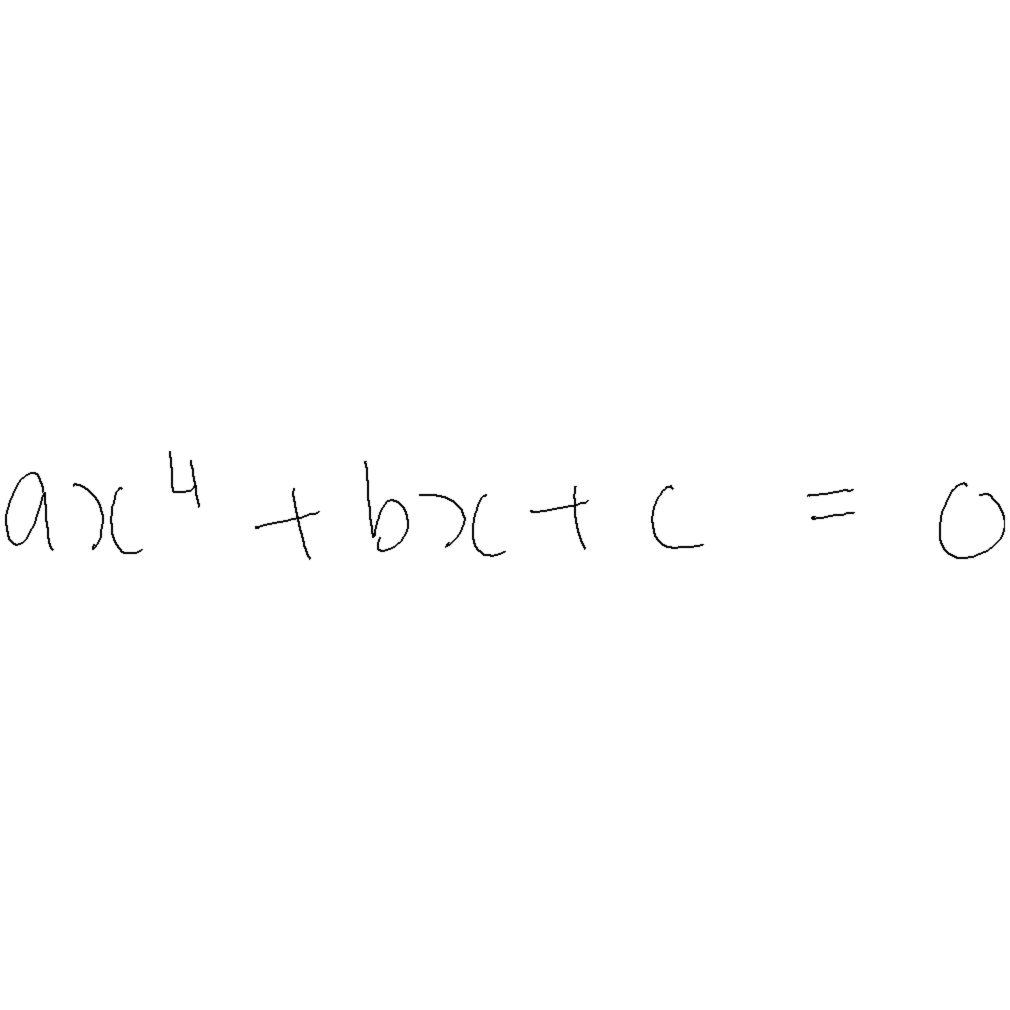 ax⁴ + bx + c = 0